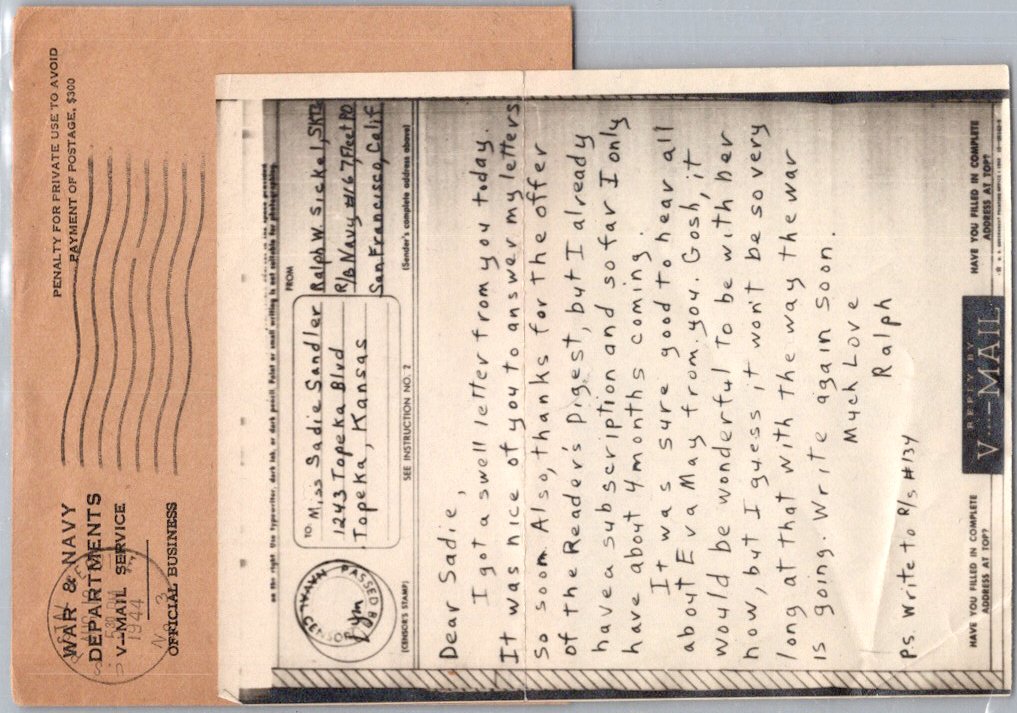 PENALTY FOR PRIVATE USE TO AVOID
PAYMENT OF POSTAGE, $300
WAR & NAVY
DEPARTMENTS
V--MAIL SERVICE
OFFICIAL BUSINESS
5 30 PM
1944
No. 3
on the right. Use typewriter, dark ink, or dark pencil. Faint or small writing is not suitable for photographing.
TO
Miss Sadie Sandler
1243 Topeka Blvd
Topeka, Kansas
FROM
Ralph W. Sickel, SK
R/B Navy #167, Fleet PO
San Francisco, Calif
(Sender's complete address above)
SEE INSTRUCTION NO. 2
PASSED BY
NAVAL CENSOR
(CENSOR'S STAMP)
Dear Sadie,
I got a swell letter from you today.
It was nice of you to answer my letters
so soon. Also, thanks for the offer
of the Reader's Digest, but I already
have a subscription and so far I only
have about 4 months coming.
It was sure good to hear all
about Eva May from you. Gosh, it
would be wonderful to be with her
now, but I guess it won't be so very
long at that with the way the war
is going. Write again soon.
Much Love
Ralph
P.S. Write to R/S #134
HAVE YOU FILLED IN COMPLETE
ADDRESS AT TOP?
REPLY BY
V--MAIL
HAVE YOU FILLED IN COMPLETE
ADDRESS AT TOP?